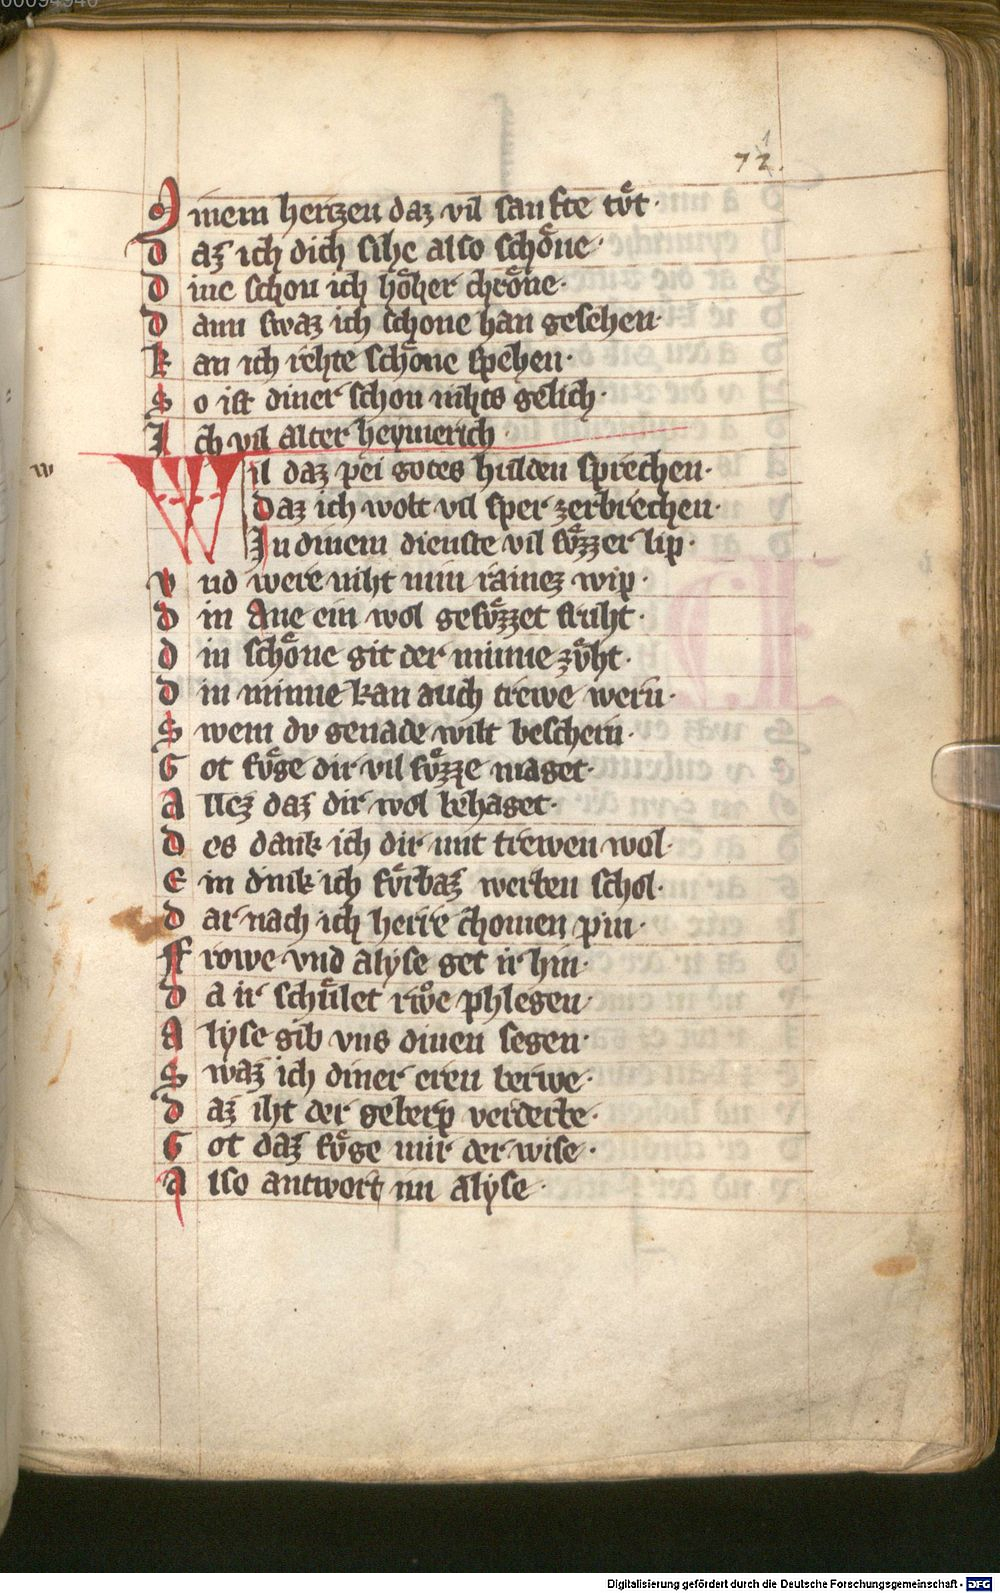 00094946
72.
M inem hertzen daz vil sanfte tuͦt·
D az ich dich sihe also schoͤne·
D ine schon ich hoͤher chroͤne·
D ann swaz ich schone han gesehen·
K an ich rehte schoͤne spehen·
S o ist diner schon nihts gelich·
I ch vil alter heymerich·
w
Wil daz pei gotes hulden sprechen·
Daz ich wolt vil sper zerbrechen·
In dinem dienste vil suͤzzer lip·
V nd were niht min rainez wip·
D in Ane ein wol gesuͤzzet fruht·
D in schoͤne git der minne zuͤht·
D in minne kan auch trewe wern·
S wem dv genade wilt beschern·
G ot fuͤge dir vil suͤzze maget·
A llez daz dir wol behaget·
D es dank ich dir mit trewen wol·
E in dink ich fuͤrbaz werben schol·
D ar nach ich herre chomen pin·
F rowe vnd alyse get ir hin·
D a ir schuͤlet rwͦe phlegen·
A lyse gib vns dinen segen·
S waz ich diner eren berwe·
D az iht der gelerp verderbe·
G ot daz fuͤge mir der wise·
A lso antwort im alyse·
Digitalisierung gefördert durch die Deutsche Forschungsgemeinschaft - DFG